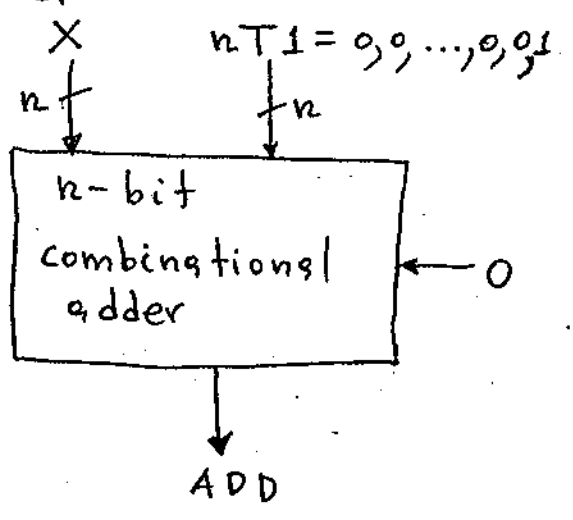 X nT1 = 0,0,...,0,0,1
n n
n-bit
combinational
adder
0
ADD